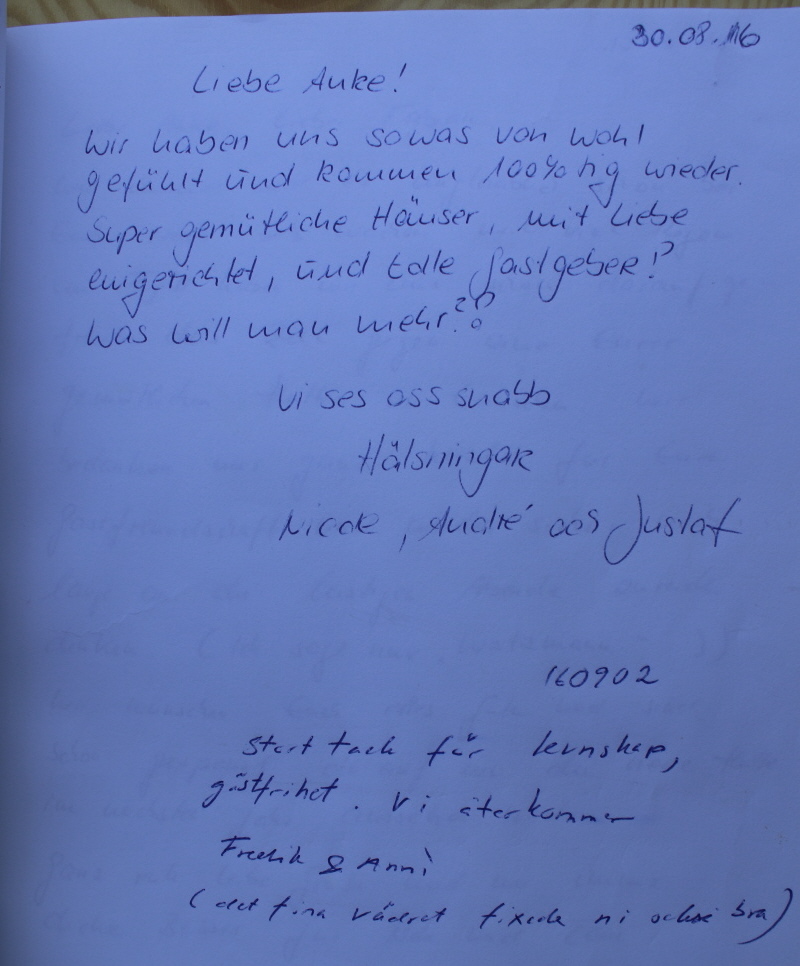 30.08.16
Liebe Anke!
Wir haben uns sowas von wohl
gefühlt und kommen 100%tig wieder.
Super gemütliche Häuser, mit Liebe
eingerichtet, und tolle Gastgeber!?
Was will man mehr??
Vi ses oss snabb
Hälsningar
Nicole, André och Gustaf
160902
Stort tack för kunskap,
gästfrihet. Vi återkommer
Fredrik & Anni
(det fina vädret fixade ni också bra)